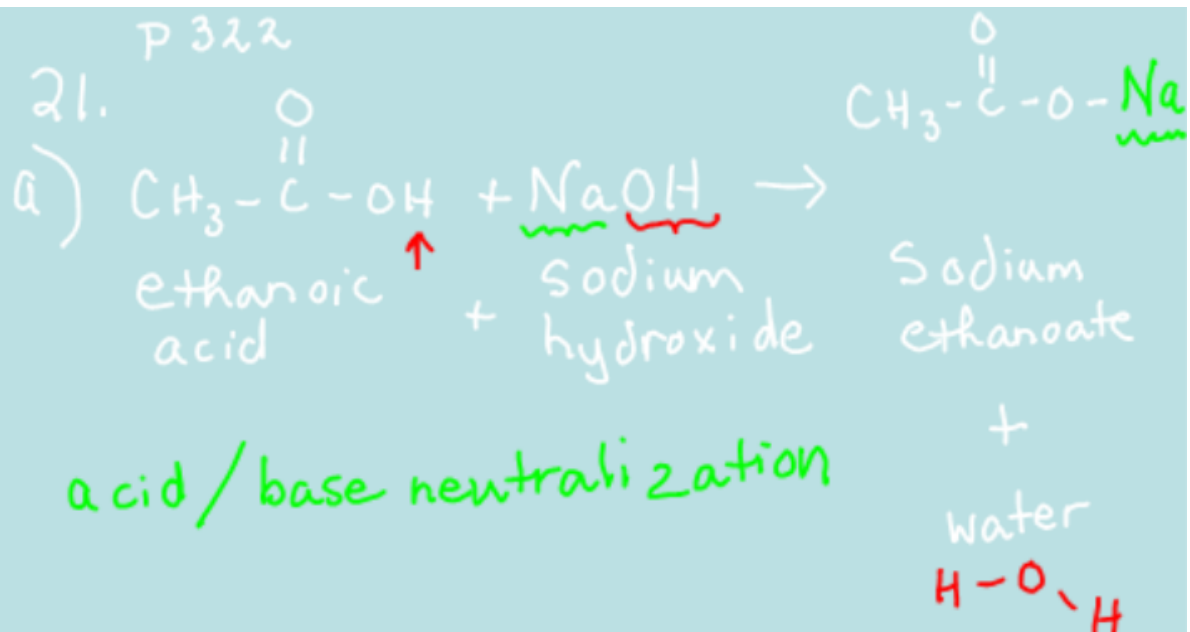 P 322
21.
O
||
a) CH₃-C-OH + NaOH →
O
||
CH₃-C-O-Na
ethanoic
acid
+
sodium
hydroxide
Sodium
ethanoate
+
water
H-O
H
acid/base neutralization